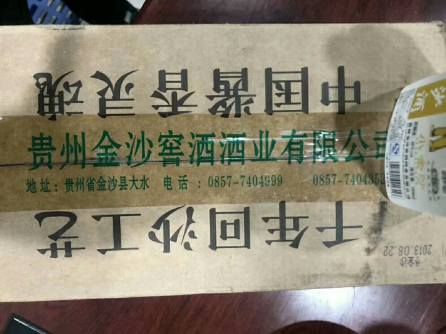 中国酱香灵魂
贵州金沙窖酒酒业有限公司
地址：贵州省金沙县大水 电话：0857-7404999 0857-740435
千年回沙工艺
2013.08.22